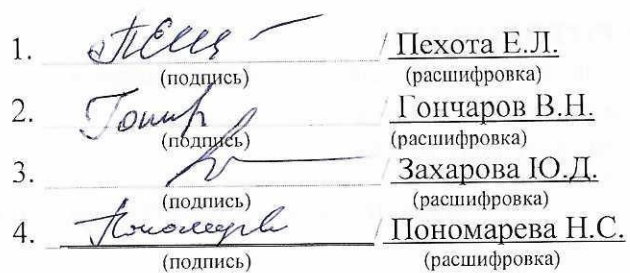 1. / Пехота Е.Л.
(подпись) (расшифровка)
2. / Гончаров В.Н.
(подпись) (расшифровка)
3. / Захарова Ю.Д.
(подпись) (расшифровка)
4. / Пономарева Н.С.
(подпись) (расшифровка)